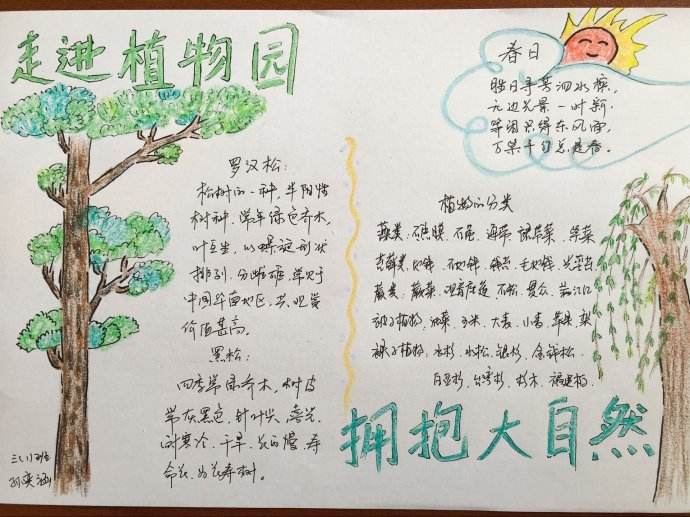 走进植物园
罗汉松:
松树的一种,半阴性
树种,常年绿色乔木,
叶互生,以螺旋形状
排列,分雌雄,单独于
中国华南地区,其观赏
价值甚高。
黑松:
四季常绿乔木,树皮
带灰黑色,针叶尖,喜光,
耐寒冷、干旱,长的慢,寿
命长,为长寿树。
三(1)班
春日
胜日寻芳泗水滨,
无边光景一时新,
等闲识得东风面,
万紫千红总是春。
植物的分类
藻类:石莼、海带、紫菜
苔藓类:
蕨类:蕨菜、石松、贯众、
被子植物:油菜、玉米、大麦、小麦、苹果、梨
裸子植物:水杉、水松、银杉、金钱松、
白豆杉、台湾杉、杉木、福建柏。
拥抱大自然